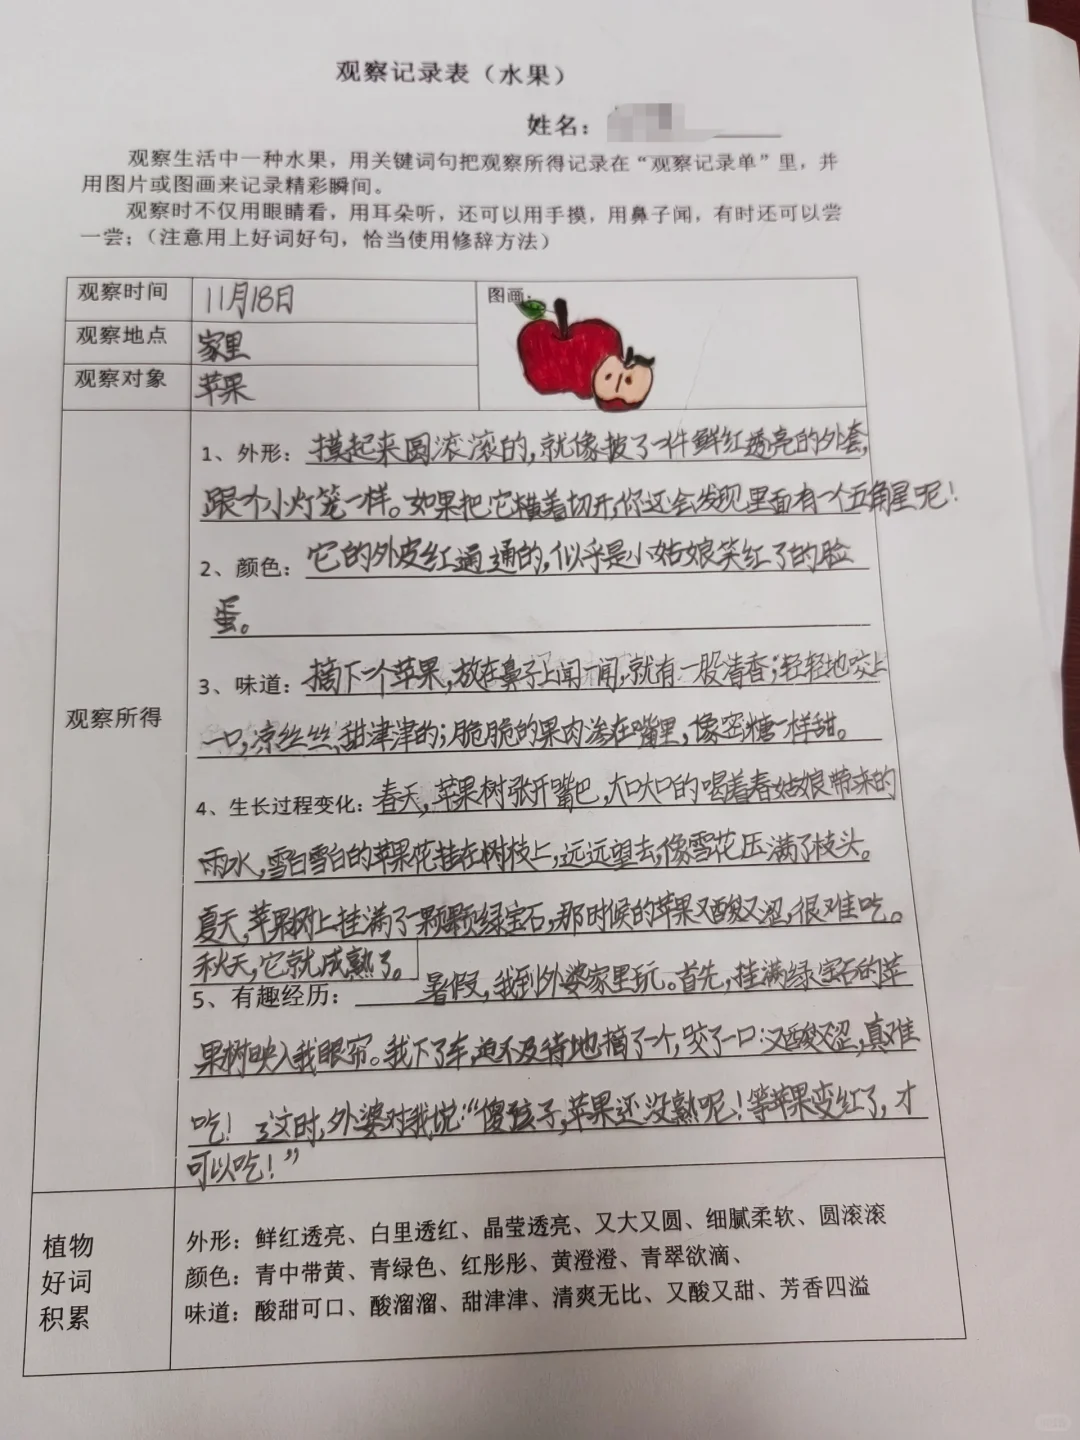 观察记录表（水果）
姓名：
观察生活中一种水果，用关键词句把观察所得记录在“观察记录单”里，并
用图片或图画来记录精彩瞬间。
观察时不仅用眼睛看，用耳朵听，还可以用手摸，用鼻子闻，有时还可以尝
一尝；（注意用上好词好句，恰当使用修辞方法）
观察时间 11月18日 图画：
观察地点 家里
观察对象 苹果
观察所得
1、外形：摸起来圆滚滚的，就像披了一件鲜红透亮的外套，
跟个小灯笼一样。如果把它横着切开，你还会发现里面有一个五角星呢！
2、颜色：它的外皮红通通的，似乎是小姑娘笑红了的脸
蛋。
3、味道：摘下一个苹果，放在鼻子上闻一闻，就有一股清香；轻轻地咬上
一口，凉丝丝、甜津津的；脆脆的果肉渗在嘴里，像密糖一样甜。
4、生长过程变化：春天，苹果树张开嘴巴，大口大口的喝着春姑娘带来的
雨水，雪白雪白的苹果花挂在树枝上，远远望去，像雪花压满了枝头。
夏天，苹果树上挂满了一颗颗绿宝石，那时候的苹果又酸又涩，很难吃。
秋天，它就成熟了。
5、有趣经历：暑假，我到外婆家里玩。首先，挂满绿宝石的苹
果树映入我眼帘。我下了车，迫不及待地摘了一个，咬了一口：又酸又涩，真难
吃！这时，外婆对我说：“傻孩子，苹果还没熟呢！等苹果变红了，才
可以吃！”
植物
好词
积累
外形：鲜红透亮、白里透红、晶莹透亮、又大又圆、细腻柔软、圆滚滚
颜色：青中带黄、青绿色、红彤彤、黄澄澄、青翠欲滴、
味道：酸甜可口、酸溜溜、甜津津、清爽无比、又酸又甜、芳香四溢